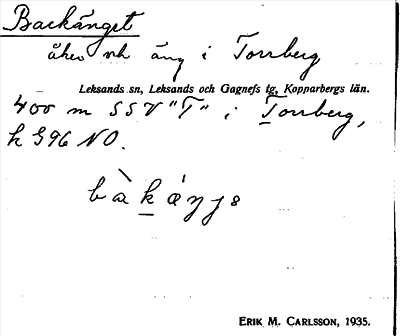 Backänget
åker och äng i Torrberg
Leksands sn, Leksands och Gagnefs tg, Kopparbergs län.
400 m SSV "T" i Torrberg,
k 396 NO.
bàkáŋjs
ERIK M. CARLSSON, 1935.